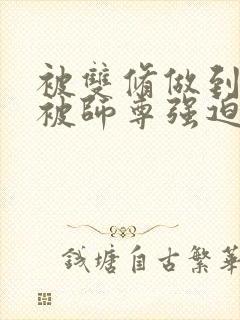 被雙脩做到
被師尊强迫
钱塘自古繁華